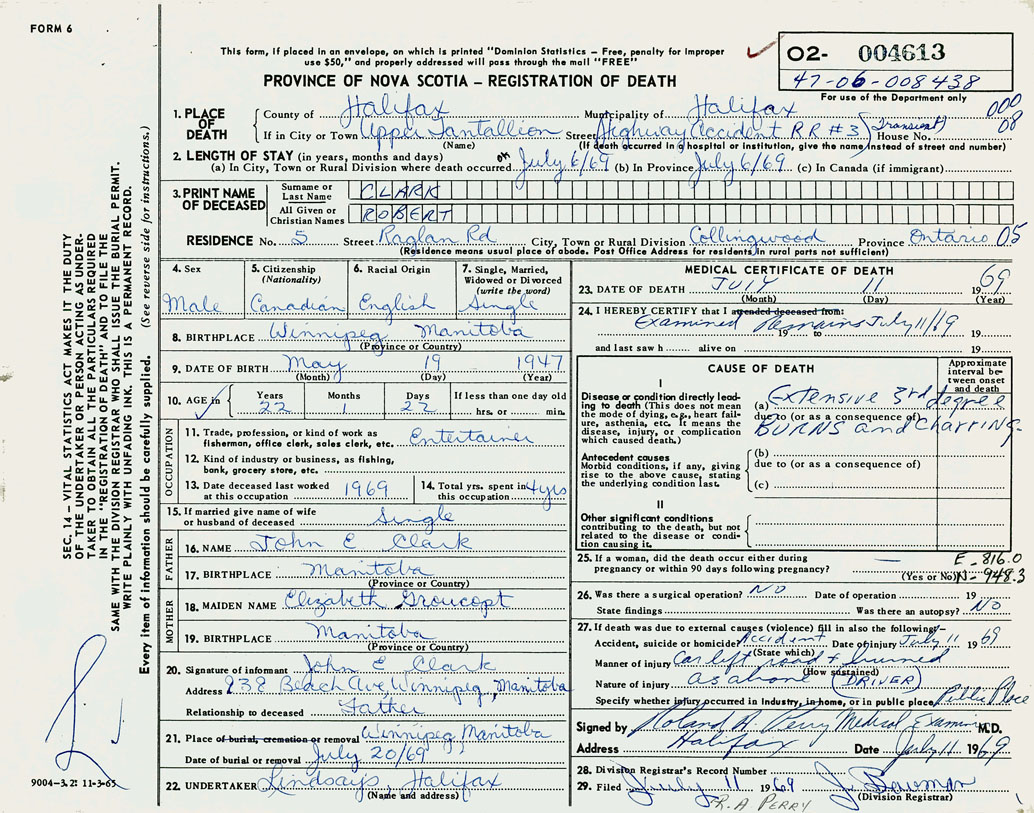 FORM 6
This form, if placed in an envelope, on which is printed "Dominion Statistics – Free, penalty for improper
use $50," and properly addressed will pass through the mail "FREE"
O2- 004613
47-06-008438
For use of the Department only
PROVINCE OF NOVA SCOTIA – REGISTRATION OF DEATH
000
08
1. PLACE OF DEATH
County of Halifax Municipality of Halifax
If in City or Town Upper Tantallion Street Highway Accident R R #3 (Transient) House No.
(Name) (If death occurred in a hospital or institution, give the name instead of street and number)
2. LENGTH OF STAY (in years, months and days)
(a) In City, Town or Rural Division where death occurred July 6/69 (b) In Province July 6/69 (c) In Canada (if immigrant)
3. PRINT NAME OF DECEASED
Surname or Last Name CLARK
All Given or Christian Names ROBERT
RESIDENCE No. 5 Street Raglan Rd City, Town or Rural Division Collingwood Province Ontario 05
(Residence means usual place of abode. Post Office Address for residents in rural parts not sufficient)
4. Sex
Male
5. Citizenship (Nationality)
Canadian
6. Racial Origin
English
7. Single, Married, Widowed or Divorced (write the word)
Single
8. BIRTHPLACE Winnipeg Manitoba
(Province or Country)
9. DATE OF BIRTH May 19 1947
(Month) (Day) (Year)
10. AGE in Years Months Days If less than one day old
22 1 22 hrs. or min.
OCCUPATION
11. Trade, profession, or kind of work as Entertainer
fisherman, office clerk, sales clerk, etc.
12. Kind of industry or business, as fishing,
bank, grocery store, etc.
13. Date deceased last worked at this occupation 1969
14. Total yrs. spent in this occupation 4 yrs
15. If married give name of wife
or husband of deceased Single
FATHER
16. NAME John E Clark
17. BIRTHPLACE Manitoba
(Province or Country)
MOTHER
18. MAIDEN NAME Elizabeth Groucopt
19. BIRTHPLACE Manitoba
(Province or Country)
20. Signature of informant John E Clark
Address 238 Beach Ave, Winnipeg, Manitoba
Relationship to deceased Father
21. Place of burial, cremation or removal Winnipeg Manitoba
Date of burial or removal July 20/69
22. UNDERTAKER Lindsay's, Halifax
(Name and address)
MEDICAL CERTIFICATE OF DEATH
23. DATE OF DEATH JULY 11 1969
(Month) (Day) (Year)
24. I HEREBY CERTIFY that I attended deceased from:
Examined Remains July 11/69
19 to 19
and last saw h alive on 19
CAUSE OF DEATH
Approximate interval between onset and death
I
Disease or condition directly leading to death (This does not mean the mode of dying, e.g., heart failure, asthenia, etc. It means the disease, injury, or complication which caused death.)
(a) Extensive 3rd degree
due to (or as a consequence of)
BURNS and Charring
Antecedent causes
Morbid conditions, if any, giving rise to the above cause, stating the underlying condition last.
(b)
due to (or as a consequence of)
(c)
II
Other significant conditions
contributing to the death, but not related to the disease or condition causing it.
25. If a woman, did the death occur either during
pregnancy or within 90 days following pregnancy? —
(Yes or No)
E-816.0
N-948.3
26. Was there a surgical operation? NO Date of operation 19
State findings Was there an autopsy? NO
27. If death was due to external causes (violence) fill in also the following:-
Accident, suicide or homicide? Accident Date of injury July 11 1969
(State which)
Manner of injury Car left road & burned
(How sustained)
Nature of injury as above (DRIVER)
Specify whether injury occurred in industry, in home, or in public place Public Place
Signed by Roland A. Perry Medical Examiner M.D.
Address Halifax Date July 11 1969
28. Division Registrar's Record Number
29. Filed July 11 1969 J. Bowman
(Division Registrar)
R.A PERRY
SEC. 14 – VITAL STATISTICS ACT MAKES IT THE DUTY
OF THE UNDERTAKER OR PERSON ACTING AS UNDER-
TAKER TO OBTAIN ALL THE PARTICULARS REQUIRED
IN THE "REGISTRATION OF DEATH" AND TO FILE THE
SAME WITH THE DIVISION REGISTRAR WHO SHALL ISSUE THE BURIAL PERMIT.
WRITE PLAINLY WITH UNFADING INK. THIS IS A PERMANENT RECORD.
Every item of information should be carefully supplied. (See reverse side for instructions.)
9004–3.2: 11-3-65